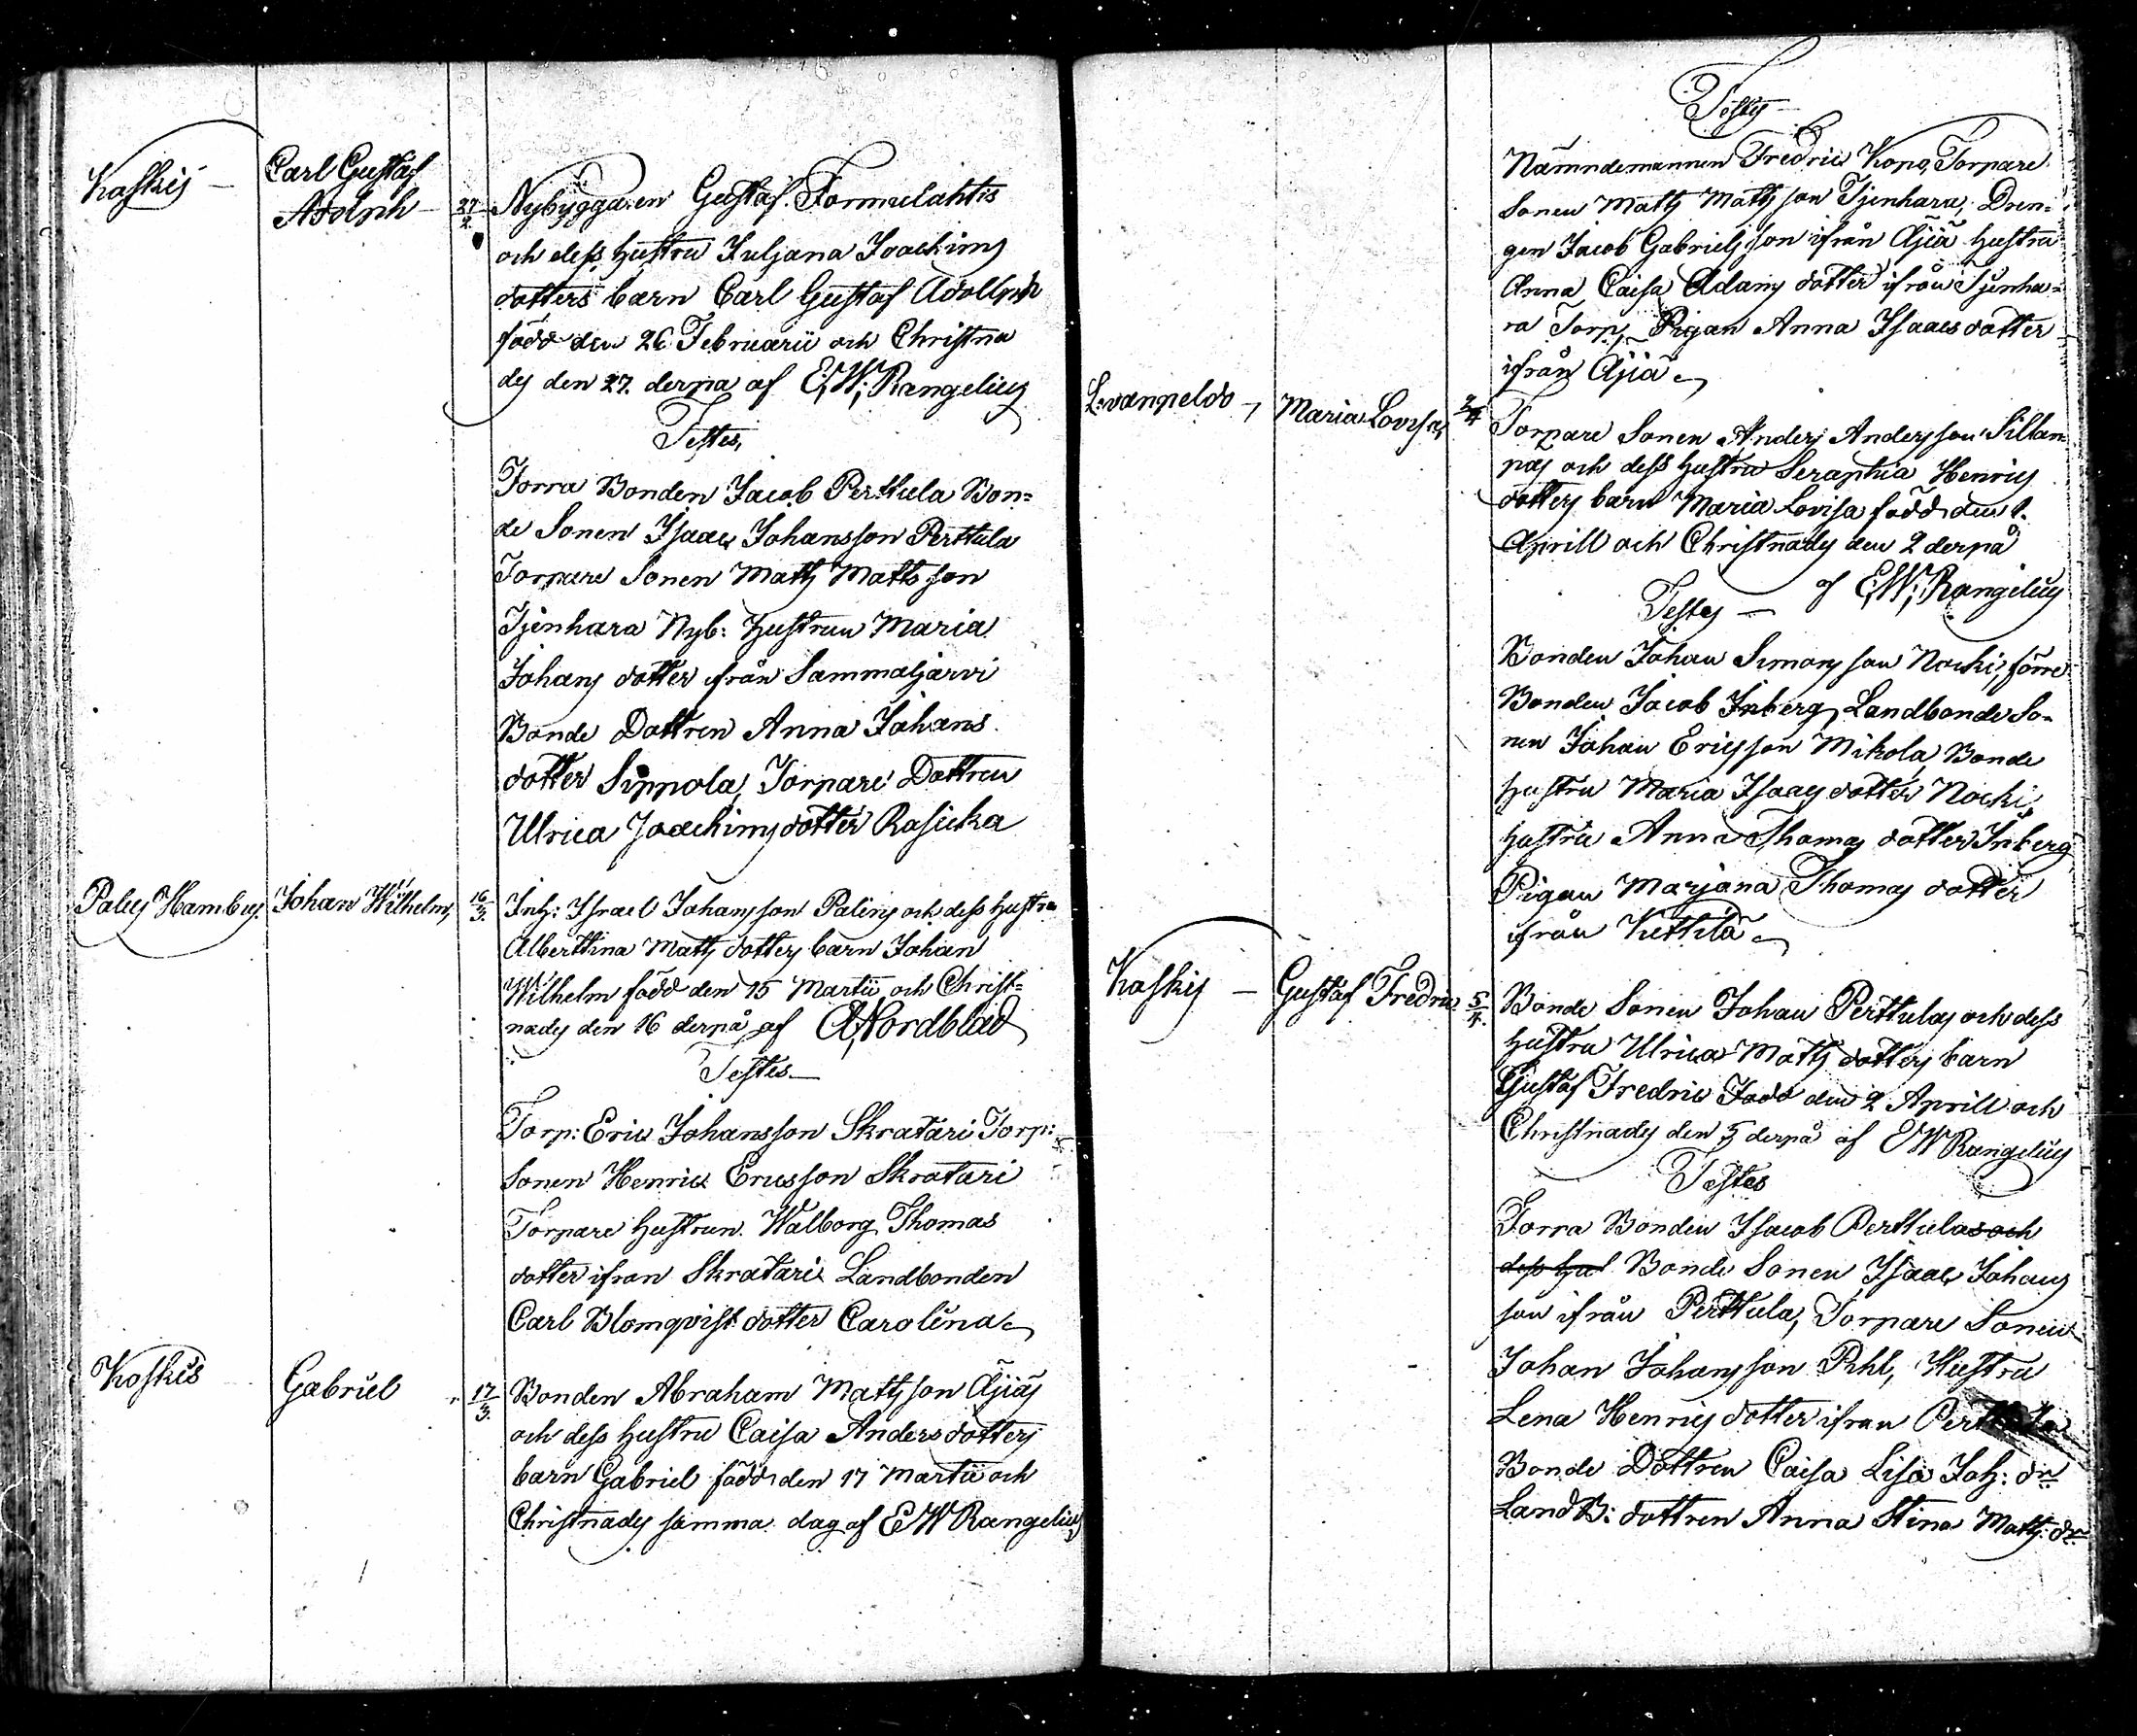 Koskis — Carl Gustaf
Adolph — 27/2 Nybyggaren Gustaf Formulahtis
och dess hustru Juljana Joachims
dotters barn Carl Gustaf Adolph
född den 26 Februarii och Christna
des den 27. derpa af E; W; Rangelius
Testes,
Forra Bonden Jacob Perttula Bon=
de Sonen Isaac Johansson Perttula
Torpare Sonen Matts Mattsson
Tjenhara Nyb: Hustrun Maria
Johans dotter ifrån Sammaljarvi
Bonde Dottren Anna Johans
dotter Sippola, Torpare Dottren
Ulrica Joachims dotter Rasicka
Palus Hambus. Johan Wilhelm, 16/3. Inh: Israel Johansson Palins och dess hustru
Alberttina Matts dotters barn Johan
Wilhelm född den 15 Martii och Christ=
nades den 16 derpå af A, Nordblad
Testes —
Torp: Eric Johansson Skratari Torp:
Sonen Henric Ericsson Skratari
Torpare Hustrun Walborg Thomas
dotter ifran Skratari Landbonden
Carl Blomqvist dotter Carolina
Koskis Gabriel 17/3. Bonden Abraham Mattsson Äjiäs
och dess hustru Caisa Anders dotters
barn Gabriel född den 17 Martii och
Christnades samma dag af E W Rangelius
Testes
Nämndemannen Fredric Kono, Torpare
Sonen Matts Mattsson Tjenhara, Dren=
gen Jacob Gabrielsson ifrån Äjiä hustru
Anna Caisa Adams dotter ifrån Tjenha=
ra Torp, Pigan Anna Isaacs dotter
ifrån Äjiä
Maria Lovisa 2/4 Torpare Sonen Anders Andersson Sillan=
päs och dess hustru Seraphia Henrics
dotters barn Maria Lovisa född den 1.
Aprill och Christnades den 2 derpå
Testes — af E; W; Rangelius
Bonden Johan Simonsson Nocki, förre
Bonden Jacob Inberg, Landbonde So=
nen Johan Ericsson Mikola, Bonde
hustru Maria Isaacs dotter Nocki,
hustru Anna Thomas dotter Inberg
Pigan Marjana Thomas dotter
ifrån Kettilä
Koskis — Gustaf Fredric 5/4. Bonde Sonen Johan Perttulas och dess
hustru Ulrica Matts dotters barn
Gustaf Fredric Född den 2 Aprill och
Christnades den 5 derpå af E W Rangelius
Testes
Forra Bonden Jsacob Perttulas och
dess hu Bonde Sonen Isaac Johans
son ifrån Perttula, Torpare Sonen
Johan Johansson Pihl, Hustru
Lena Henrics dotter ifran Perttula
Bonde Dottren Caisa Lisa Joh: dr
LandB: dottren Anna Stina Matts: dr.